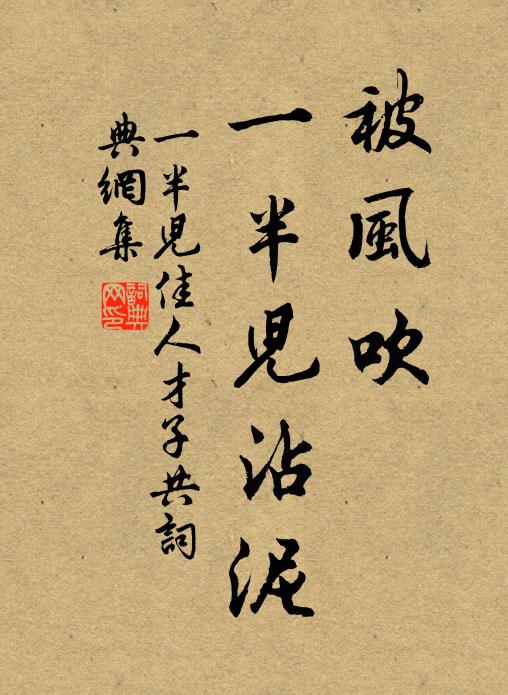 被風吹
一半児沾泥
一半児佳人才子共詞
典網集
詞典网印